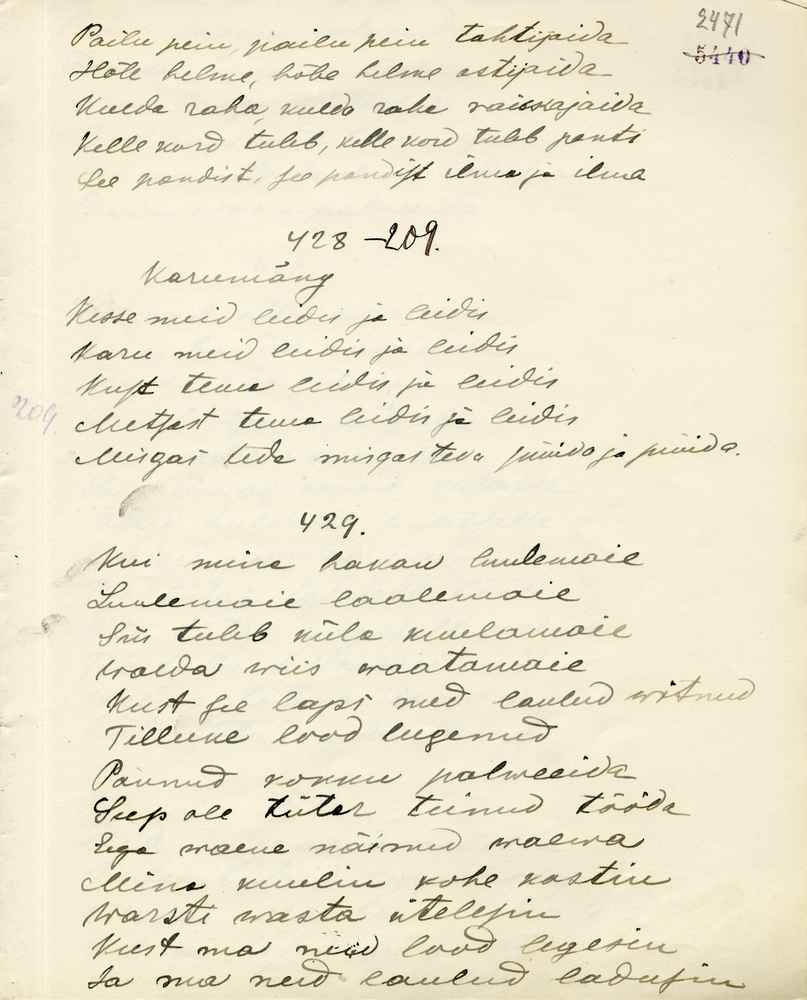 2471
5440
Pailu peiu, pailu peiu tahtijaida
Hõbe helme, hõbe helme ostijaida
Kulda raha, kulda raha vaissajaida
Kelle kord tuleb, kelle kord tuleb panti
See pandist, see pandist ilma ja ilma
428 - 209.
Karumäng
Kesse meid leidis ja leidis
Karu meid leidis ja leidis
Kust tema leidis ja leidis
209.
Metsast tema leidis ja leidis
Misgas teda misgas teda püüda ja püüda.
429.
Kui mina hakan luulemaie
Luulemaie laalemaie
Siis tuleb küla kuulamaie
Walda wiis waatamaie
Kust see laps need laulud wõtnud
Tillune lood lugenud
Pannud kokku palweeida
Seep ole tütar teinud tööda
Ega waene näinud waewa
Mina kuulin kohe kostin
Warsti wasta ütelesin
Kust ma need lood lugesin
Ja ma need laulud ladusin